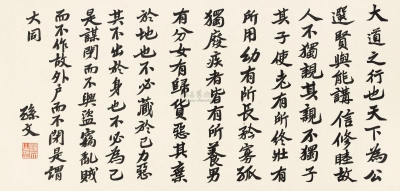 大道之行也天下為公
選賢與能講信修睦故
人不獨親其親不獨子
其子使老有所終壯有
所用幼有所長矜寡孤
獨廢疾者皆有所養男
有分女有歸貨惡其棄
於地也不必藏於己力惡
其不出於身也不必為己
是謀閉而不興盜竊亂賊
而不作故外戶而不閉是謂
大同
孫文